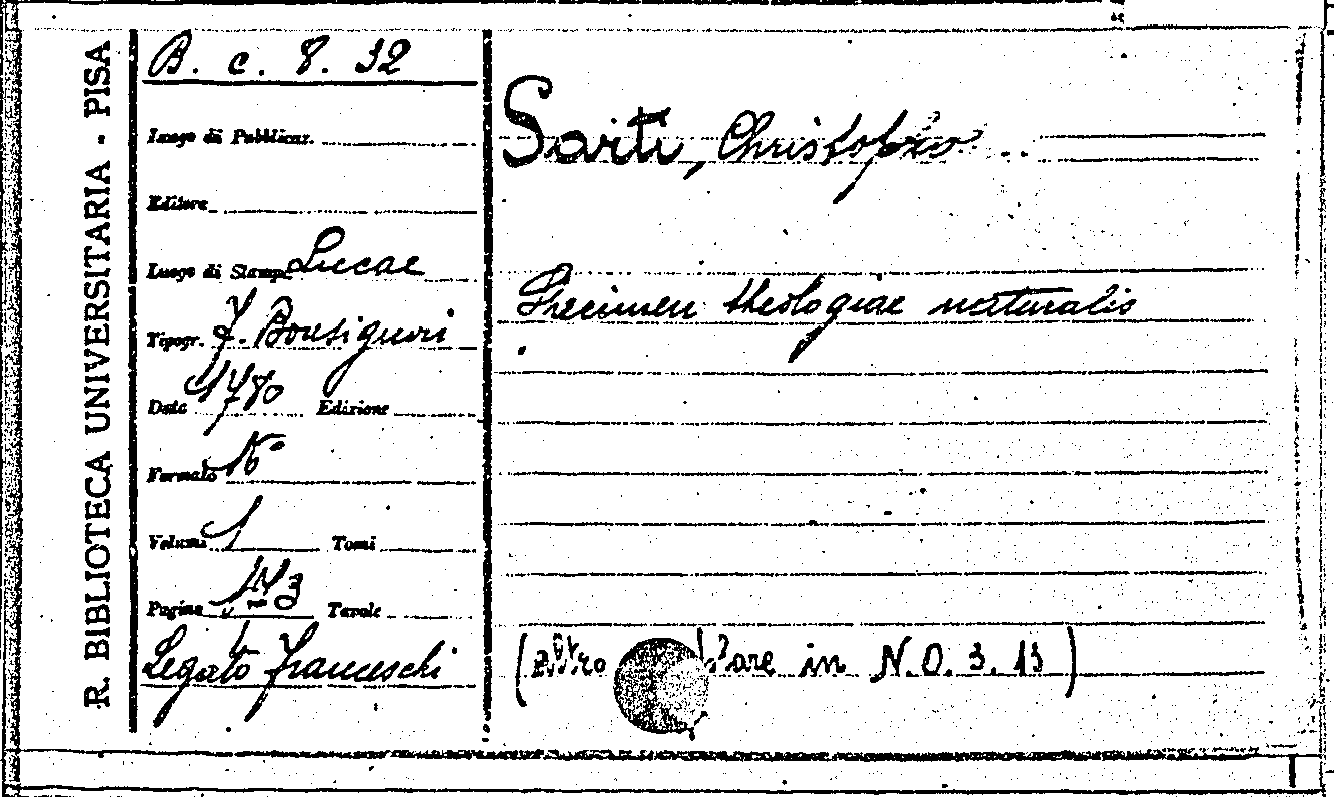 R. BIBLIOTECA UNIVERSITARIA - PISA
B. c. 8. 32
Luogo di Pubblicaz.
Editore
Luogo di Stampa Lucae
Tipogr. J. Bonsignori
Data 1780 Edizione
Formato 16°
Volumi 1 Tomi
Pagine 173 Tavole
Legato Franceschi
Sarti, Christofbro
Specimen theologiae naturalis
.
(altro in N.O. 3. 13)